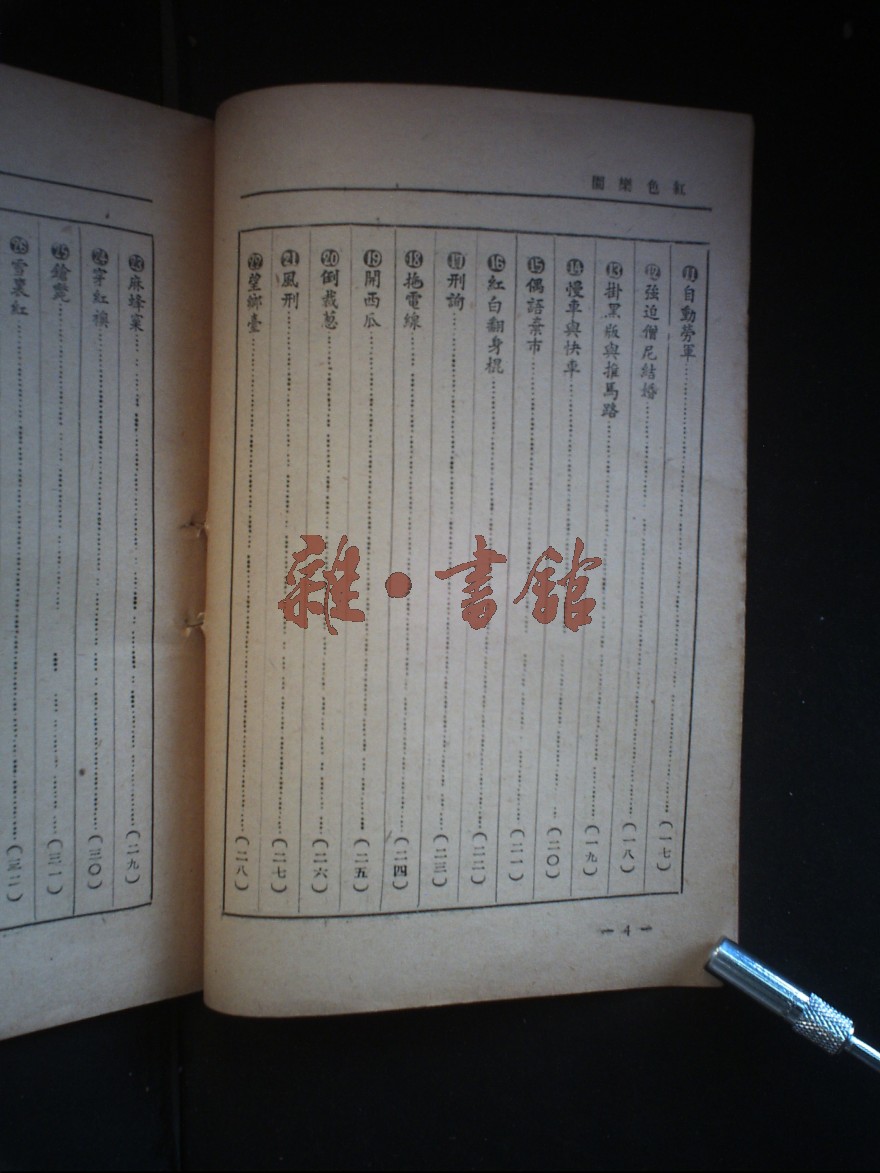 紅色樂園
⑪自動勞軍……(一七)
⑫強迫僧尼結婚……(一八)
⑬掛黑版與推馬路……(一九)
⑭慢車與快車……(二〇)
⑮偶語棄市……(二一)
⑯紅白翻身棍……(二二)
⑰刑詢……(二三)
⑱拖電線……(二四)
⑲開西瓜……(二五)
⑳倒栽葱……(二六)
㉑風刑……(二七)
㉒望鄉臺……(二八)
—4—
㉓麻蜂窠……(二九)
㉔穿紅襖……(三〇)
㉕鎗斃……(三一)
㉖雪裏紅……(三二)
雜·書館